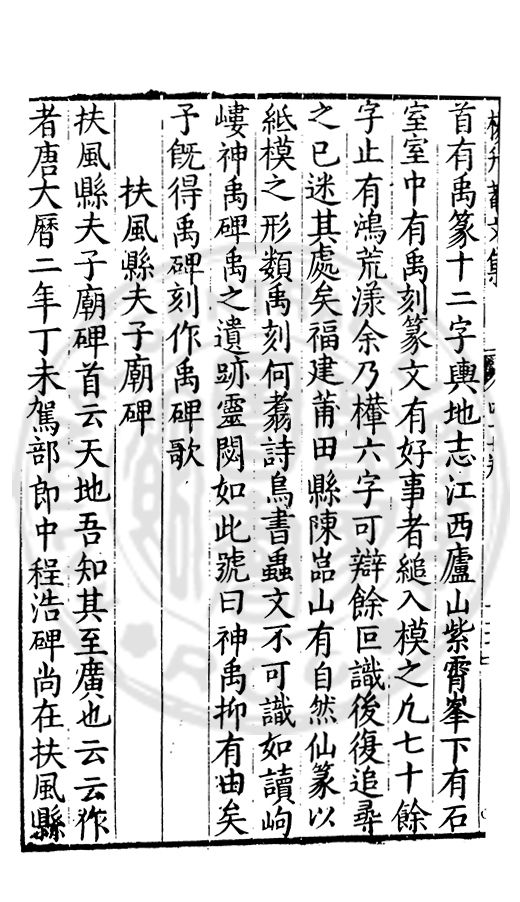 首有禹篆十二字輿地志江西廬山紫霄峯下有石
室室中有禹刻篆文有好事者縋入模之凢七十餘
字止有鴻荒漾余乃六字可辯餘叵識後復追尋
之已迷其處矣福建莆田縣陳嵓山有自然仙篆以
紙模之形類禹刻何翥詩鳥書蟲文不可識如讀岣
嶁神禹碑禹之遺跡靈閟如此號曰神禹抑有由矣
予旣得禹碑刻作禹碑歌
扶風縣夫子廟碑
扶風縣夫子廟碑首云天地吾知其至廣也云云作
者唐大曆二年丁未駕部郎中程浩碑尚在扶風縣